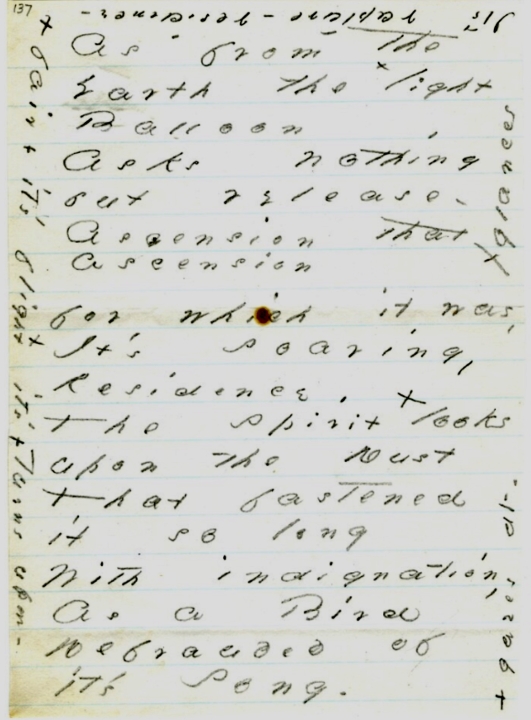 137
It's rapture - residence -
As from the
Earth the + light
Balloon
Asks nothing
but release -
Ascension that
ascension
for which it was,
It's soaring,
Residence.
The spirit + looks
upon the Dust
That fastened
it so long
With indignation,
As a Bird
Defrauded of
it's song.
+ glances
+ gazes at -